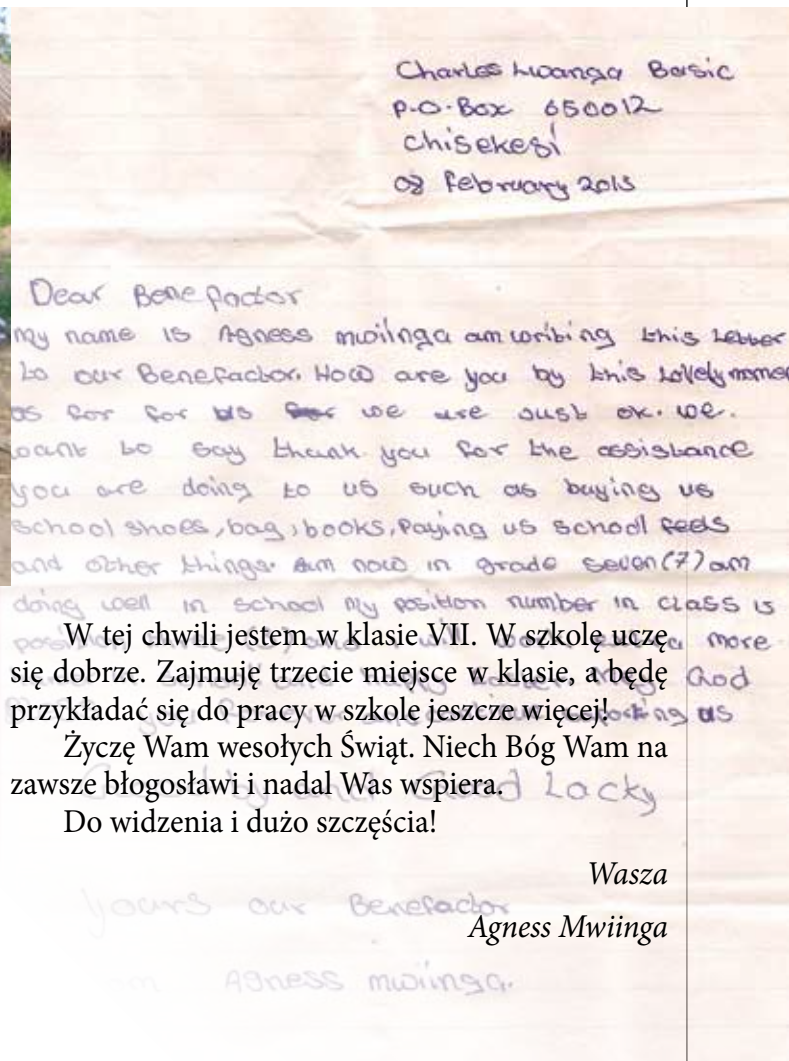 Charles Lwanga Basic
P.O.Box 650012
Chisekesi
08 February 2013
Dear Benefactor
My name is Agness mwiinga am writing this Letter
to our Benefactor. How are you by this Lovely momen
as for for us we are Just ok. we.
want to say thank you for the assistance
you are doing to us such as buying us
school shoes, bag, books, Paying us school feels
and other things. Am now in grade seven (7) am
doing well in school my position number in class is
more
W tej chwili jestem w klasie VII. W szkolę uczę
się dobrze. Zajmuję trzecie miejsce w klasie, a będę
God
przykładać się do pracy w szkole jeszcze więcej!
us
Życzę Wam wesołych Świąt. Niech Bóg Wam na
zawsze błogosławi i nadal Was wspiera.
Good Lacky
Do widzenia i dużo szczęścia!
Wasza
yours our Benefactor
Agness Mwiinga
Agness mwiinga.